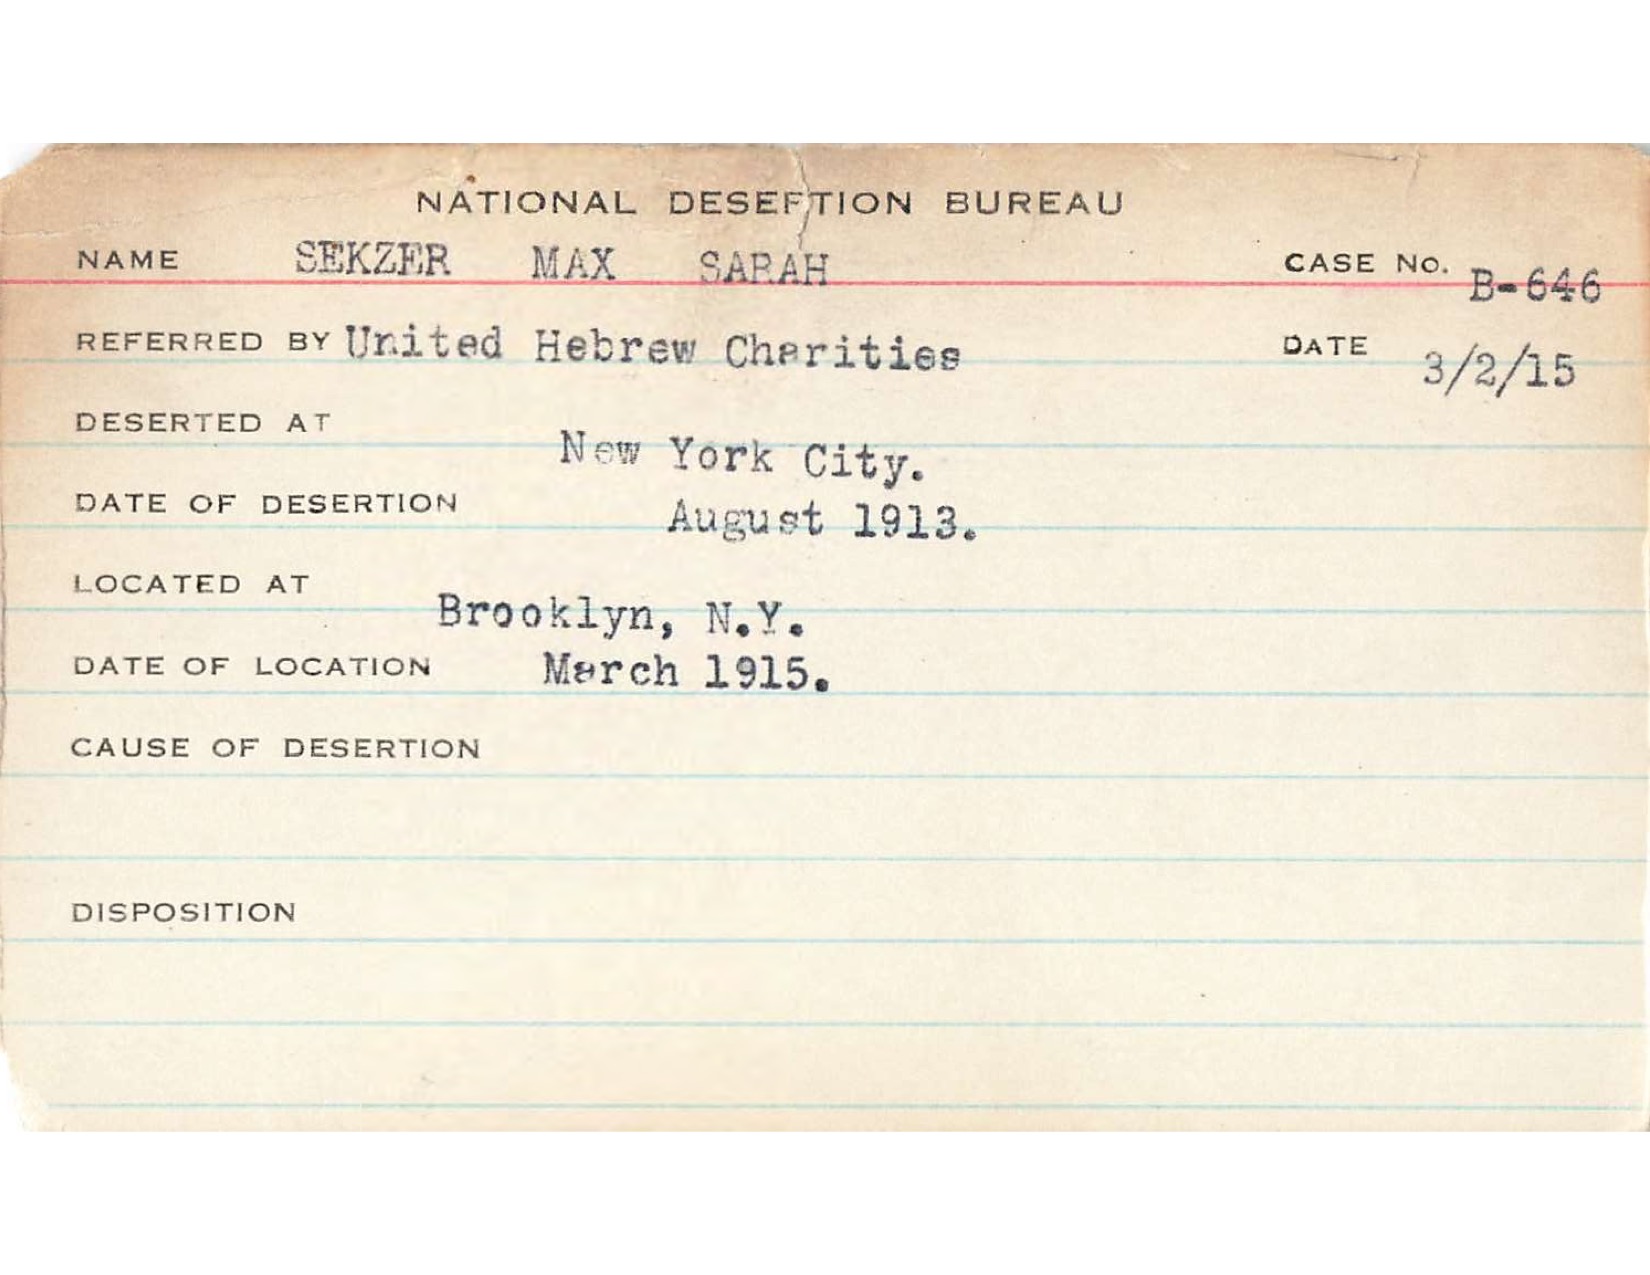 NATIONAL DESERTION BUREAU
NAME SEKZER MAX SARAH CASE NO. B-646
REFERRED BY United Hebrew Charities DATE 3/2/15
DESERTED AT New York City.
DATE OF DESERTION August 1913.
LOCATED AT Brooklyn, N.Y.
DATE OF LOCATION March 1915.
CAUSE OF DESERTION
DISPOSITION